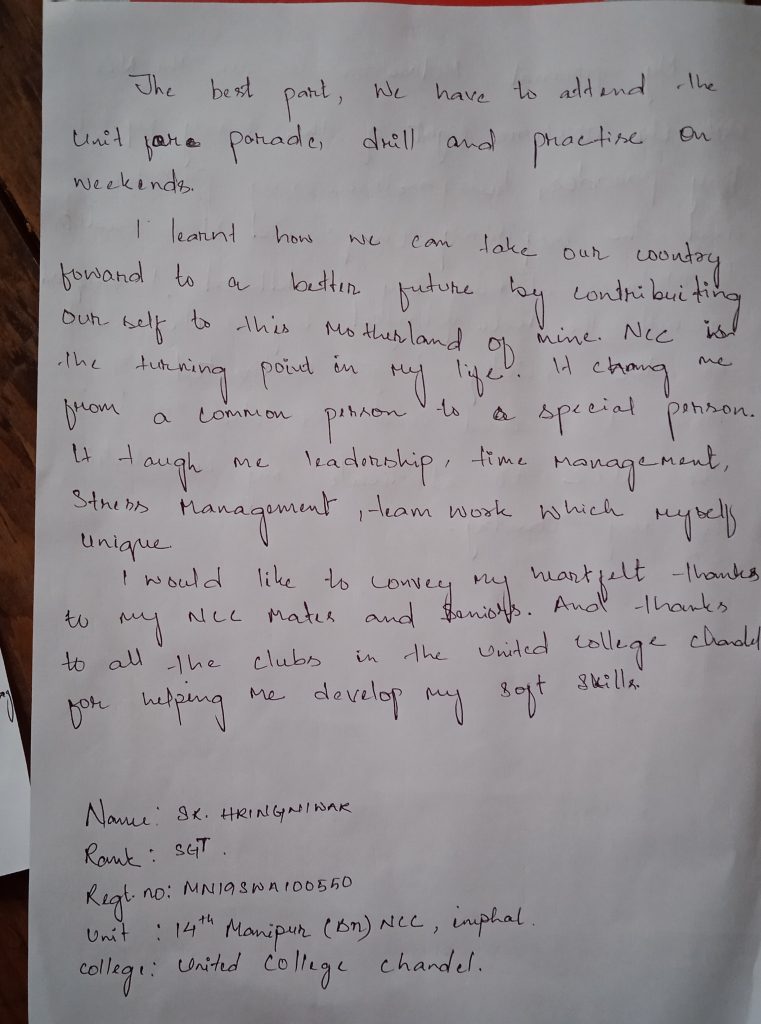 The best part, We have to attend the
Unit for parade, drill and practise on
weekends.
I learnt how we can take our coontry
foward to a better future by contribuiting
our self to this Motherland of mine. Ncc is
the turning point in my life. It chang me
from a common person to a special person.
It taugh me leadership, time management,
Stress Management, team work which myself
unique.
I would like to convey my heartfelt thanks
to my NCC Mates and Seniors. And thanks
to all the clubs in the united college chandel
for helping me develop my soft skills.
Name: SK. HRINGNIWAR
Rank: SGT.
Regt. no: MN19SWA100550
Unit : 14th Manipur (Bn) NCC, imphal.
college: United College chandel.